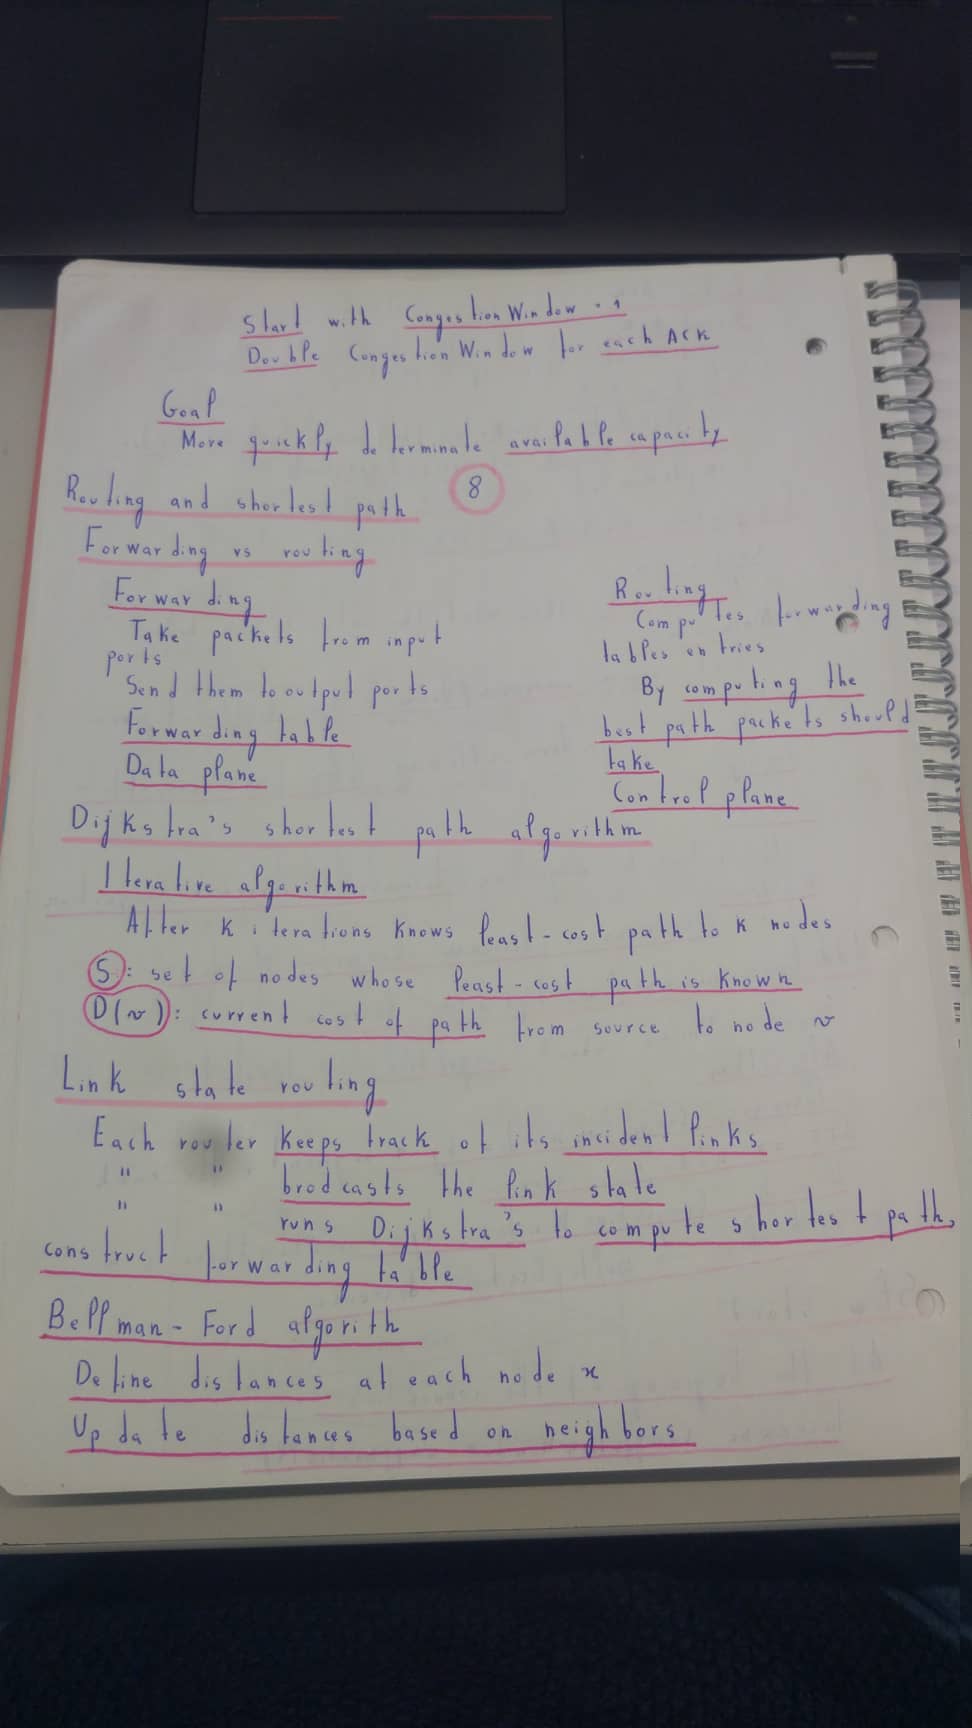 Start with Congestion Window = 1
Double Congestion Window for each ACK
Goal
More quickly determinate available capacity
8
Routing and shortest path
Forwarding vs routing
Forwarding
Take packets from input
ports
Send them to output ports
Forwarding table
Data plane
Routing
Computes forwarding
tables entries
By computing the
best path packets should
take
Control plane
Dijkstra's shortest path algorithm
Iterative algorithm
After K iterations knows least-cost path to K nodes
S: set of nodes whose least-cost path is known
D(v): current cost of path from source to node v
Link state routing
Each router keeps track of its incident links
" " brodcasts the link state
" " runs Dijkstra's to compute shortest path,
construct forwarding table
Bellman-Ford algorith
Define distances at each node x
Update distances based on neighbors